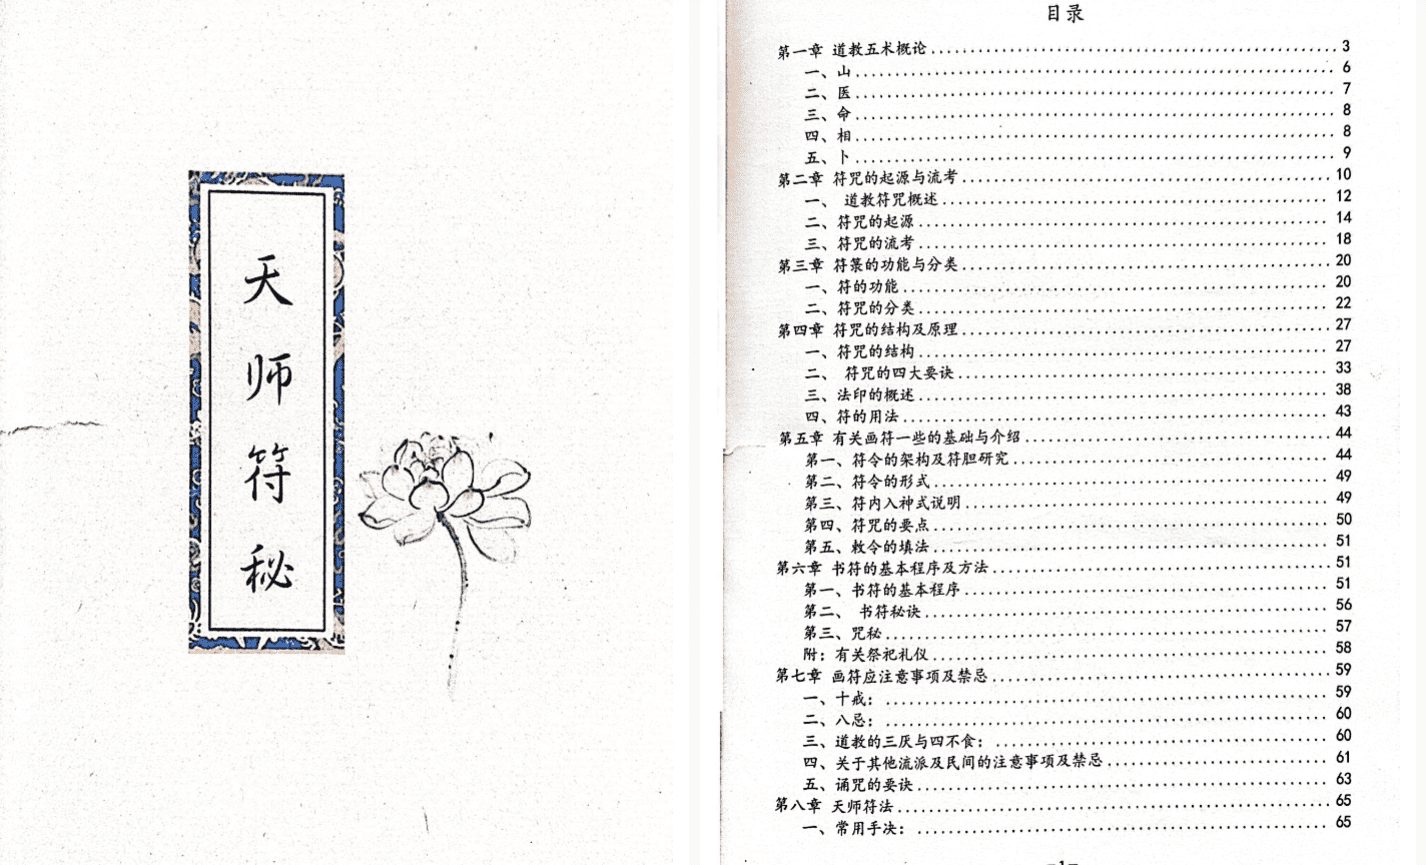 天师符秘
目录
第一章 道教五术概论 3
一、山 6
二、医 7
三、命 8
四、相 8
五、卜 9
第二章 符咒的起源与流考 10
一、 道教符咒概述 12
二、符咒的起源 14
三、符咒的流考 18
第三章 符箓的功能与分类 20
一、符的功能 20
二、符咒的分类 22
第四章 符咒的结构及原理 27
一、符咒的结构 27
二、 符咒的四大要诀 33
三、法印的概述 38
四、符的用法 43
第五章 有关画符一些的基础与介绍 44
第一、符令的架构及符胆研究 44
第二、符令的形式 49
第三、符内入神式说明 49
第四、符咒的要点 50
第五、敕令的填法 51
第六章 书符的基本程序及方法 51
第一、书符的基本程序 51
第二、 书符秘诀 56
第三、咒秘 57
附：有关祭祀礼仪 58
第七章 画符应注意事项及禁忌 59
一、十戒： 59
二、八忌： 60
三、道教的三厌与四不食： 60
四、关于其他流派及民间的注意事项及禁忌 61
五、诵咒的要诀 63
第八章 天师符法 65
一、常用手决： 65